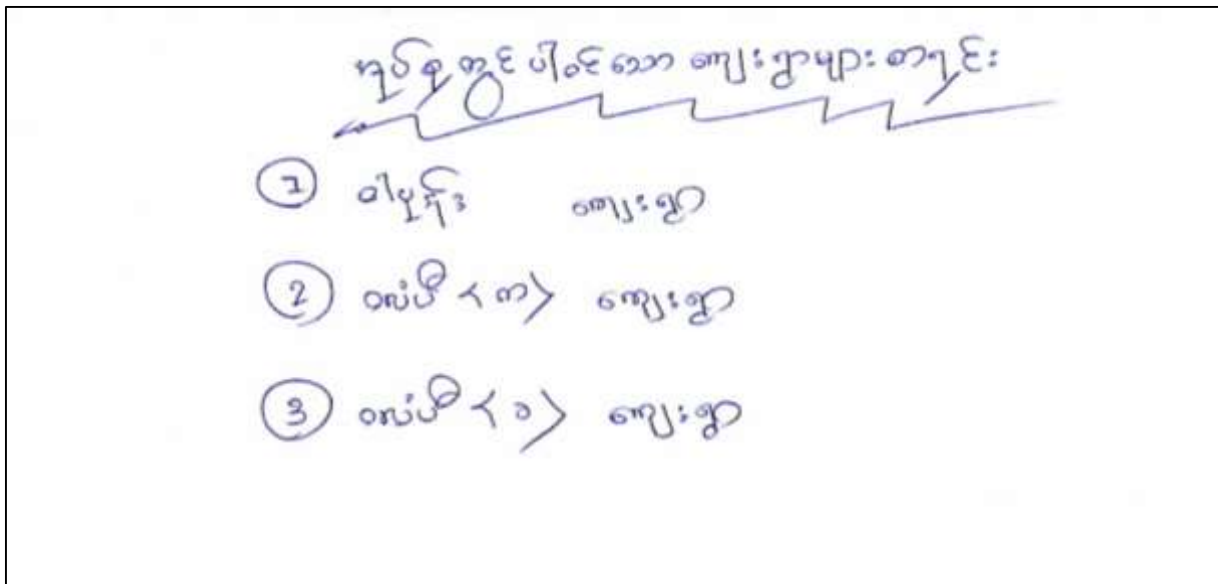 အုပ်စုတွင် ပါဝင်သော ကျေးရွာများ စာရင်း
1 ဝါမှုန်း ကျေးရွာ
2 ဝလံပီ < က > ကျေးရွာ
3 ဝလံပီ < ခ > ကျေးရွာ